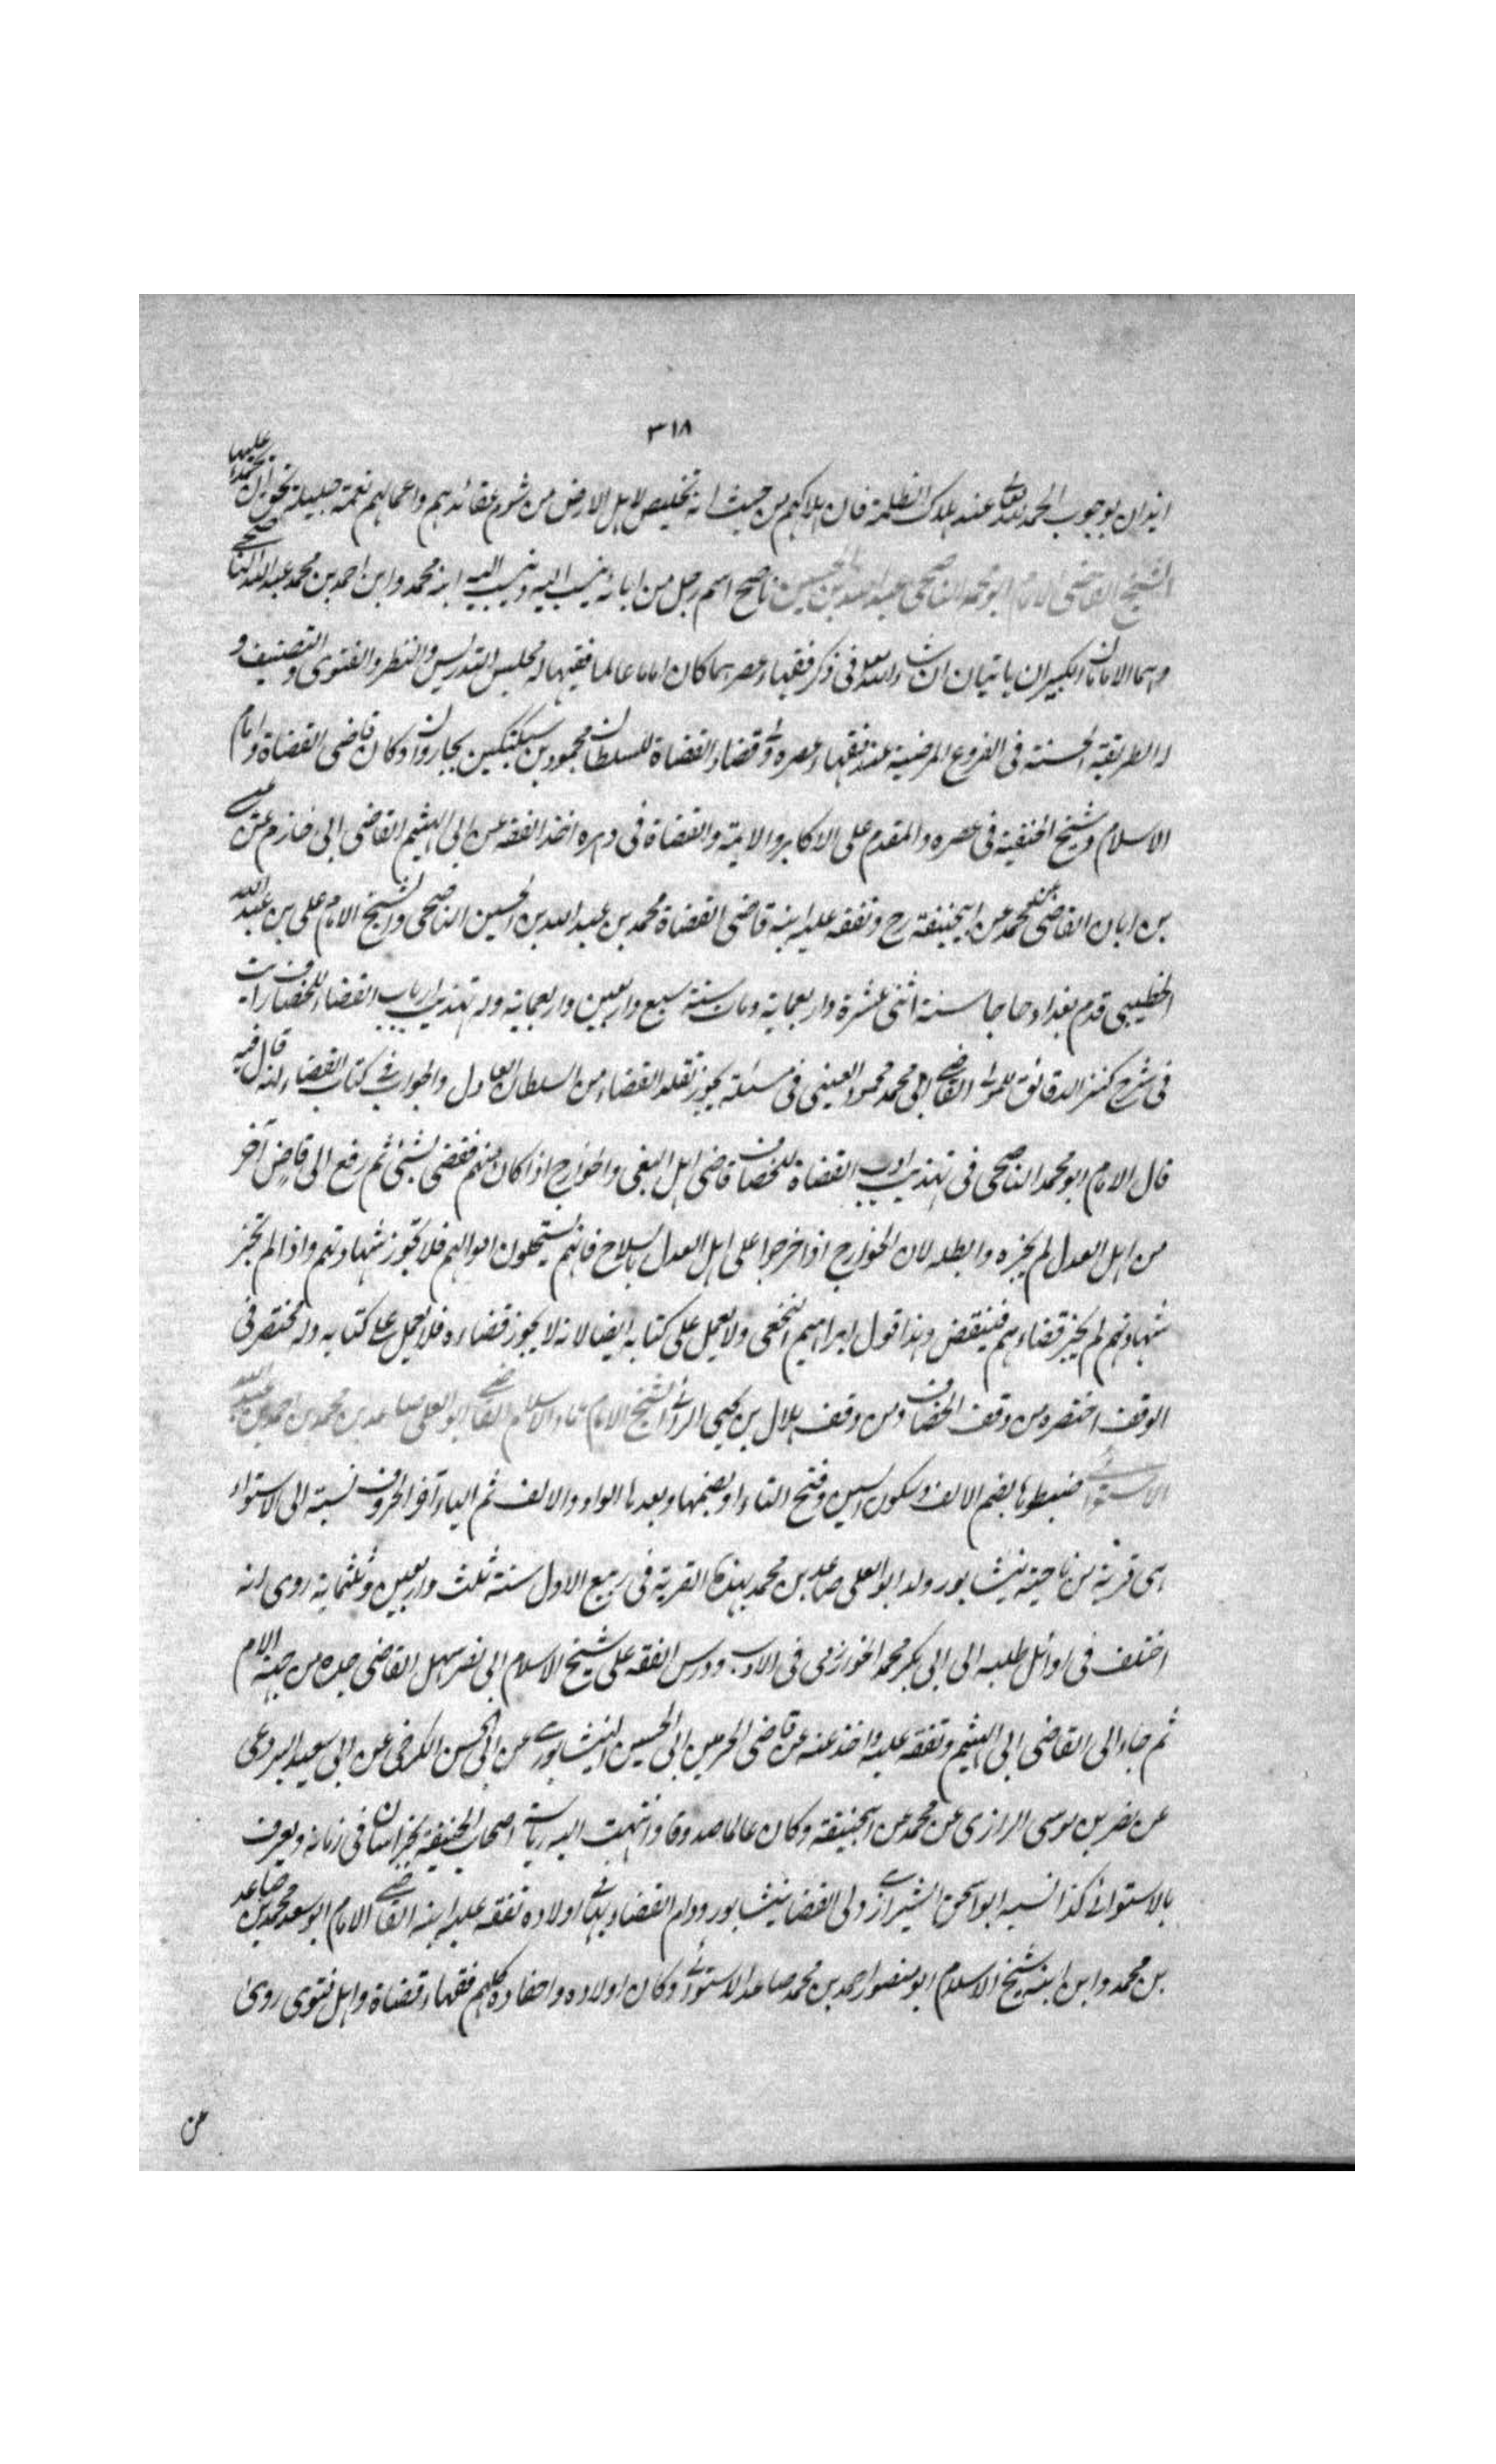 ٣١٨
ايذان بوجوب الحمد لله تعالى عند هلاك الظلمة فان هلاكهم من حيث انه تخليص لاهل الارض من شوم عقائدهم واعمالهم نعمة جليلة يحق ان يحمد عليها
الشيخ القاضى الامام ابو محمد الناصحى عبد الله بن الحسين ناصح اسم رجل من ابائه ينسب اليه وينسب اليه ابنه محمد وابن احمد بن محمد عبد الله الناصحى
وهما الامامان الكبيران ياتيان ان شاء الله تعالى فى ذكر فقهاء عصرهما كان اماما عالما فقيها له مجلس التدريس والنظر والفتوى والتصنيف و
له الطريقة الحسنة فى الفروع المرضية عند فقهاء عصره ولى قضاء القضاة للسلطان محمود بن سبكتكين ببخارا وكان قاضى القضاة وامام
الاسلام وشيخ الحنفية فى عصره والمقدم على الاكابر والايمة والقضاة فى دهره اخذ الفقه عن ابى الهيثم القاضى ابى خازم عن عيسى
بن ابان القاضى عن محمد عن ابيحنيفة رح وتفقه عليه ابنه قاضى القضاة محمد بن عبد الله بن الحسين الناصحى والشيخ الامام على بن عبد الله
الخطيبى قدم بغداد حاجا سنة اثنى عشرة واربعماية ومات سنة سبع واربعين واربعماية وله تهذيب ادب القضاء للخصاف رايت
فى شرح كنز الدقائق للمولى القاضى ابى محمد محمود العينى فى مسئلة يجوز تقلد القضاء من السلطان العادل والجوار فى كتاب القضاء انه قال فيه
قال الامام ابو محمد الناصحى فى تهذيب ادب القضاة للخصاف قاضى اهل البغى والخوارج اذا كان منهم فقضى بشئ ثم رفع الى قاض آخر
من اهل العدل لم يجزه وابطله لان الخوارج اذا خرجوا على اهل العدل بالسلاح فانهم يستحلون اموالهم فلا تجوز شهادتهم واذا لم تجز
شهادتهم لم يجز قضاءهم فينقض وهذا قول ابراهيم النخعى ولا يعمل على كتابه ايضا لانه لا يجوز قضاءه فلا يعمل على كتابه وله مختصر فى
الوقف اختصره من وقف الخصاف ومن وقف هلال بن يحيى الراى الشيخ الامام عماد الاسلام القاضى ابو العلى صاعد بن محمد بن احمد بن عبد الله
الاستوائى ضبطوها بضم الالف وسكون السين وفتح التاء او بضمها وبعدها الواو والالف ثم الياء آخر الحروف نسبة الى الاستواء
هى قرية من ناحية نيشابور ولد ابو العلى صاعد بن محمد بهذه القرية فى ربيع الاول سنة ثلث واربعين وثلثماية روى انه
اختلف فى اوائل طلبه الى ابى بكر محمد الخوارزمى فى الادب ودرس الفقه على شيخ الاسلام ابى نصر سهل القاضى جده من جهة الام
ثم جاء الى القاضى ابى الهيثم وتفقه عليه واخذ عنه عن قاضى الحرمين ابى الحسين النيشابورى عن ابى الحسن الكرخى عن ابى سعيد البردعى
عن نصر بن موسى الرازى عن محمد عن ابيحنيفة وكان عالما صدوقا وانتهت اليه رياسة اصحاب الحنيفة بخراسان فى زمانه ويعرف
بالاستوائى كذا نسبه ابو اسحق الشيرازى ولى القضا نيشابور ودام القضاء بها فى اولاده تفقه عليه ابنه القاضى الامام ابو سعد محمد بن صاعد
بن محمد وابن ابنه شيخ الاسلام ابو منصور احمد بن محمد صاعد الاستوائى وكان اولاده واحفاده كلهم فقهاء قضاة واهل فتوى روى
عن